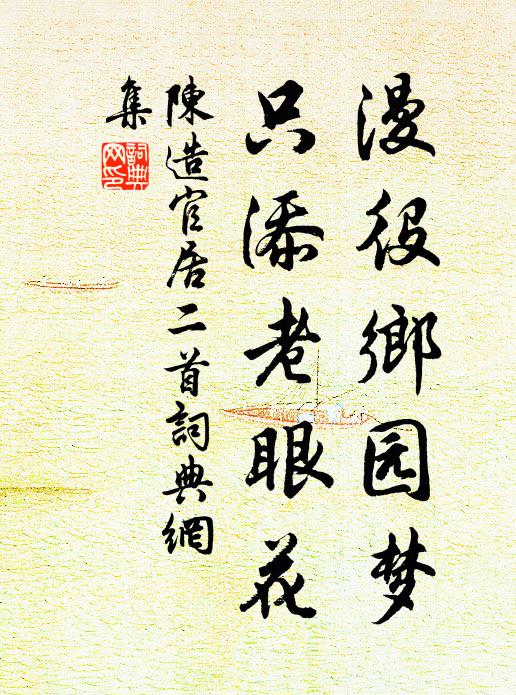 漫役鄉园梦
只添老眼花
陳造官居二首詞典網
集
詞典
网印